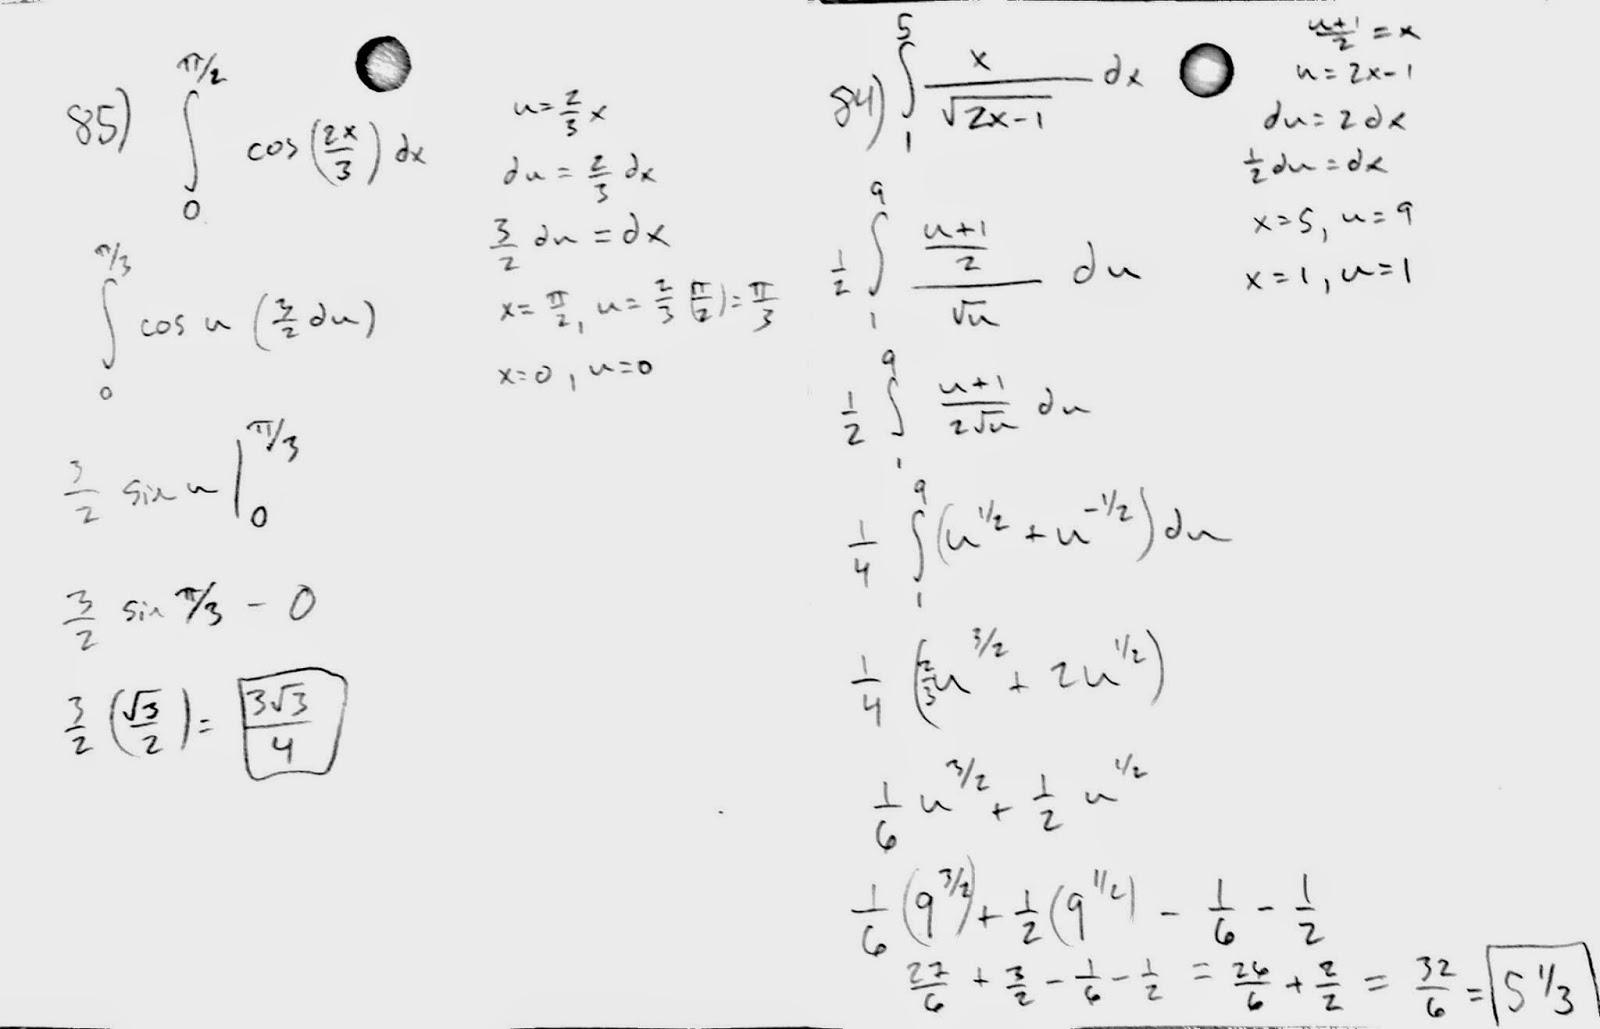 85) ∫₀^{π/2} cos(2x/3) dx
u = 2/3 x
du = 2/3 dx
3/2 du = dx
x = π/2, u = 2/3 (π/2) = π/3
x=0, u=0
∫₀^{π/3} cos u (3/2 du)
3/2 sin u |₀^{π/3}
3/2 sin π/3 - 0
3/2 (√3/2) = 3√3/4
84) ∫₁^5 x/√(2x-1) dx
(u+1)/2 = x
u = 2x-1
du = 2dx
1/2 du = dx
x=5, u=9
x=1, u=1
1/2 ∫₁^9 ((u+1)/2)/√u du
1/2 ∫₁^9 (u+1)/(2√u) du
1/4 ∫₁^9 (u^{1/2} + u^{-1/2}) du
1/4 (2/3 u^{3/2} + 2u^{1/2})
1/6 u^{3/2} + 1/2 u^{1/2}
1/6 (9^{3/2}) + 1/2 (9^{1/2}) - 1/6 - 1/2
27/6 + 3/2 - 1/6 - 1/2 = 26/6 + 2/2 = 32/6 = 5 1/3